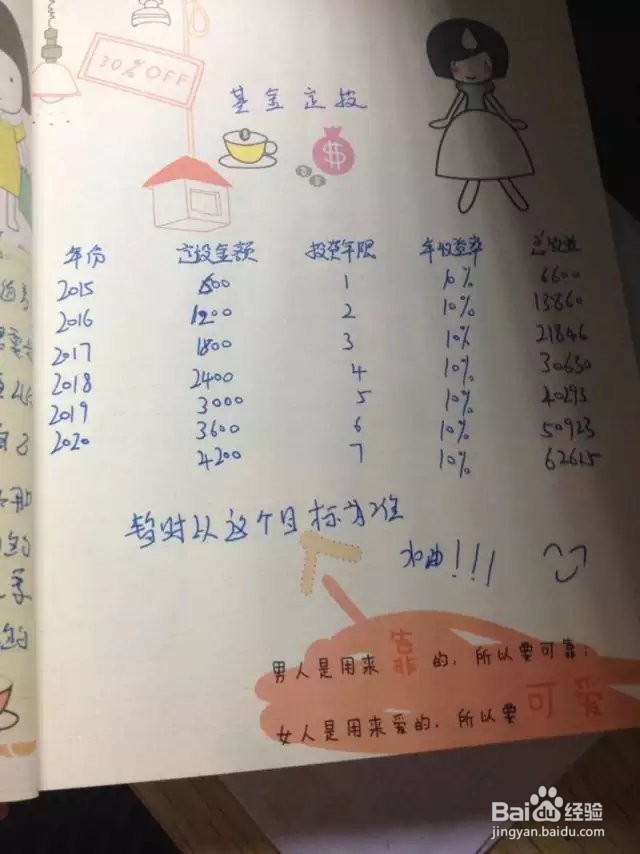 30% OFF
基金定投
年份 定投金额 投资年限 年收益率 总收益
2015 600 1 10% 6600
2016 1200 2 10% 13860
2017 1800 3 10% 21846
2018 2400 4 10% 30630
2019 3000 5 10% 40293
2020 3600 6 10% 50923
4200 7 10% 62615
暂时以这个目标为准
加油!!!
男人是用来靠的,所以要可靠;
女人是用来爱的,所以要可爱
Baidu经验
jingyan.baidu.com